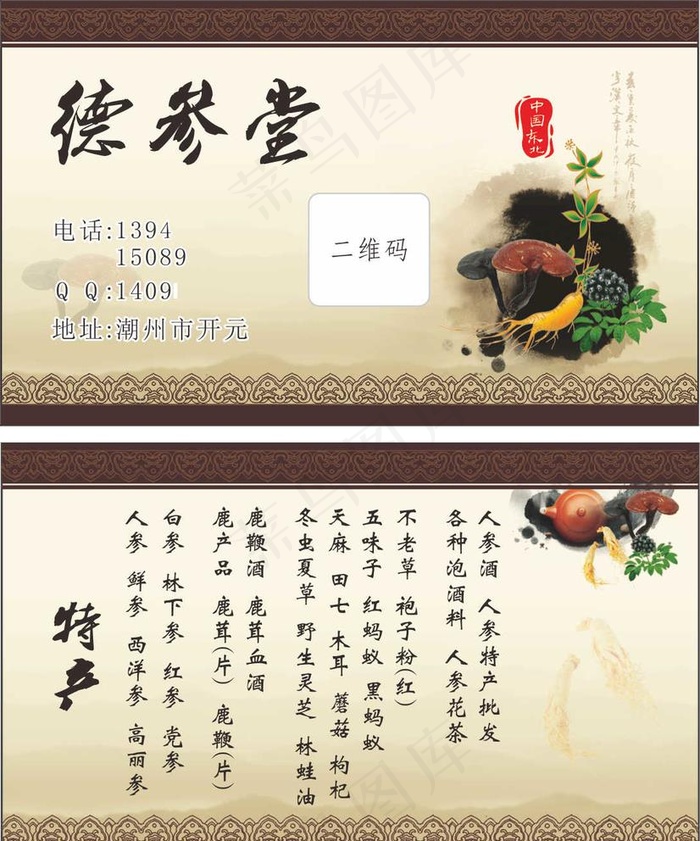 德参堂
中国东北
电话:1394
15089
QQ:1409
地址:潮州市开元
二维码
特产
人参酒 人参特产批发
各种泡酒料 人参花茶
不老草 袍子粉(红)
五味子 红蚂蚁 黑蚂蚁
天麻 田七 木耳 蘑菇 枸杞
冬虫夏草 野生灵芝 林蛙油
鹿鞭酒 鹿茸血酒
鹿产品 鹿茸(片) 鹿鞭(片)
白参 林下参 红参 党参
人参 鲜参 西洋参 高丽参
菜鸟图库